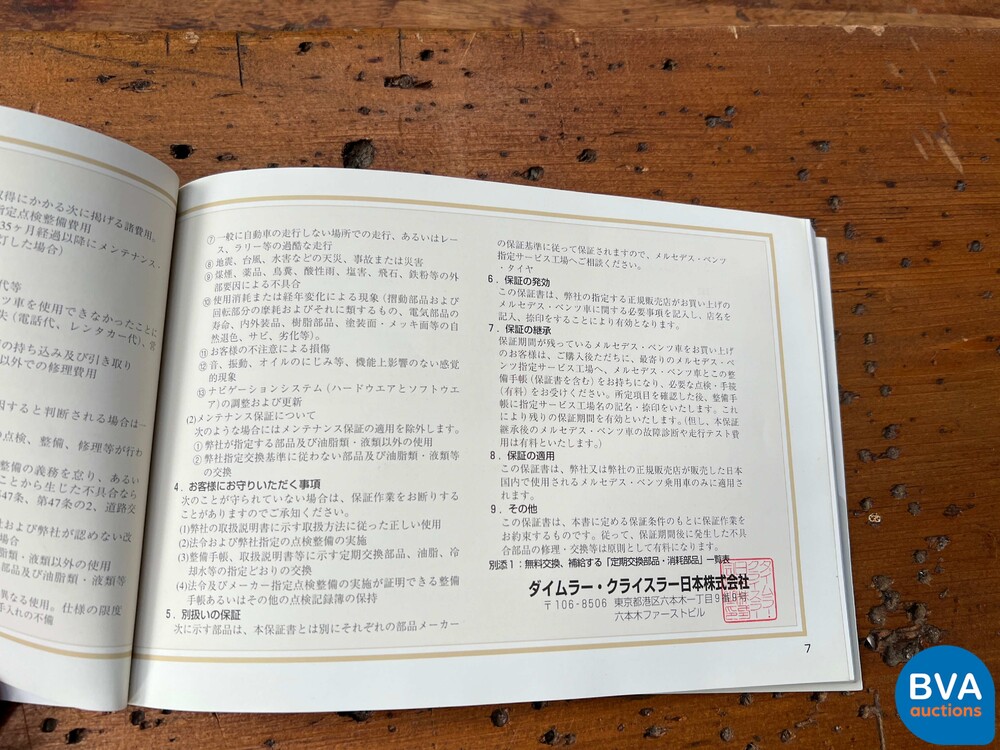 取得にかかる次に掲げる諸費用。
指定点検整備費用
35ヶ月経過以降にメンテナンス・
灯した場合)
代等
ツ車を使用できなかったことに
失(電話代、レンタカー代)、営
の持ち込み及び引き取り
以外での修理費用
因すると判断される場合は一
の点検、整備、修理等が行わ
整備の義務を怠り、あるい
ことから生じた不具合なら
47条、第47条の2、道路交
および弊社が認めない改
場合
油脂類・液類以外の使用
及び油脂類・液類等
異なる使用。仕様の限度
手入れの不備
⑦一般に自動車の走行しない場所での走行、あるいはレー
ス、ラリー等の過酷な走行
⑧地震、台風、水害などの天災、事故または災害
⑨煤煙、薬品、鳥糞、酸性雨、塩害、飛石、鉄粉等の外
部要因による不具合
⑩使用消耗または経年変化による現象(摺動部品および
回転部分の摩耗およびそれに類するもの、電気部品の
寿命、内外装品、樹脂部品、塗装面・メッキ面等の自
然退色、サビ、劣化等)。
⑪お客様の不注意による損傷
⑫音、振動、オイルのにじみ等、機能上影響のない感覚
的現象
⑬ナビゲーションシステム(ハードウエアとソフトウエ
ア)の調整および更新
(2)メンテナンス保証について
次のような場合にはメンテナンス保証の適用を除外します。
①弊社が指定する部品及び油脂類・液類以外の使用
②弊社指定交換基準に従わない部品及び油脂類・液類等
の交換
4．お客様にお守りいただく事項
次のことが守られていない場合は、保証作業をお断りする
ことがありますのでご承知ください。
(1)弊社の取扱説明書に示す取扱方法に従った正しい使用
(2)法令および弊社指定の点検整備の実施
(3)整備手帳、取扱説明書等に示す定期交換部品、油脂、冷
却水等の指定どおりの交換
(4)法令及びメーカー指定点検整備の実施が証明できる整備
手帳あるいはその他の点検記録簿の保持
5．別扱いの保証
次に示す部品は、本保証書とは別にそれぞれの部品メーカー
の保証基準に従って保証されますので、メルセデス・ベンツ
指定サービス工場へご相談ください。
・タイヤ
6．保証の発効
この保証書は、弊社の指定する正規販売店がお買い上げの
メルセデス・ベンツ車に関する必要事項を記入し、店名を
記入、捺印をすることにより有効となります。
7．保証の継承
保証期間が残っているメルセデス・ベンツ車をお買い上げ
のお客様は、ご購入後ただちに、最寄りのメルセデス・ベ
ンツ指定サービス工場へ、メルセデス・ベンツ車とこの整
備手帳(保証書を含む)をお持ちになり、必要な点検・手続
(有料)をお受けください。所定項目を確認した後、整備手
帳に指定サービス工場名の記名・捺印をいたします。これ
により残りの保証期間を有効といたします。(但し、本保証
継承後のメルセデス・ベンツ車の故障診断や走行テスト費
用は有料といたします。)
8．保証の適用
この保証書は、弊社又は弊社の正規販売店が販売した日本
国内で使用されるメルセデス・ベンツ乗用車のみに適用さ
れます。
9．その他
この保証書は、本書に定める保証条件のもとに保証作業を
お約束するものです。従って、保証期間後に発生した不具
合部品の修理・交換等は原則として有料になります。
別添1：無料交換、補給する「定期交換部品・消耗部品」一覧表
ダイムラー・クライスラー日本株式会社
〒106-8506 東京都港区六本木一丁目9番9号
六本木ファーストビル
7
BVA
auctions